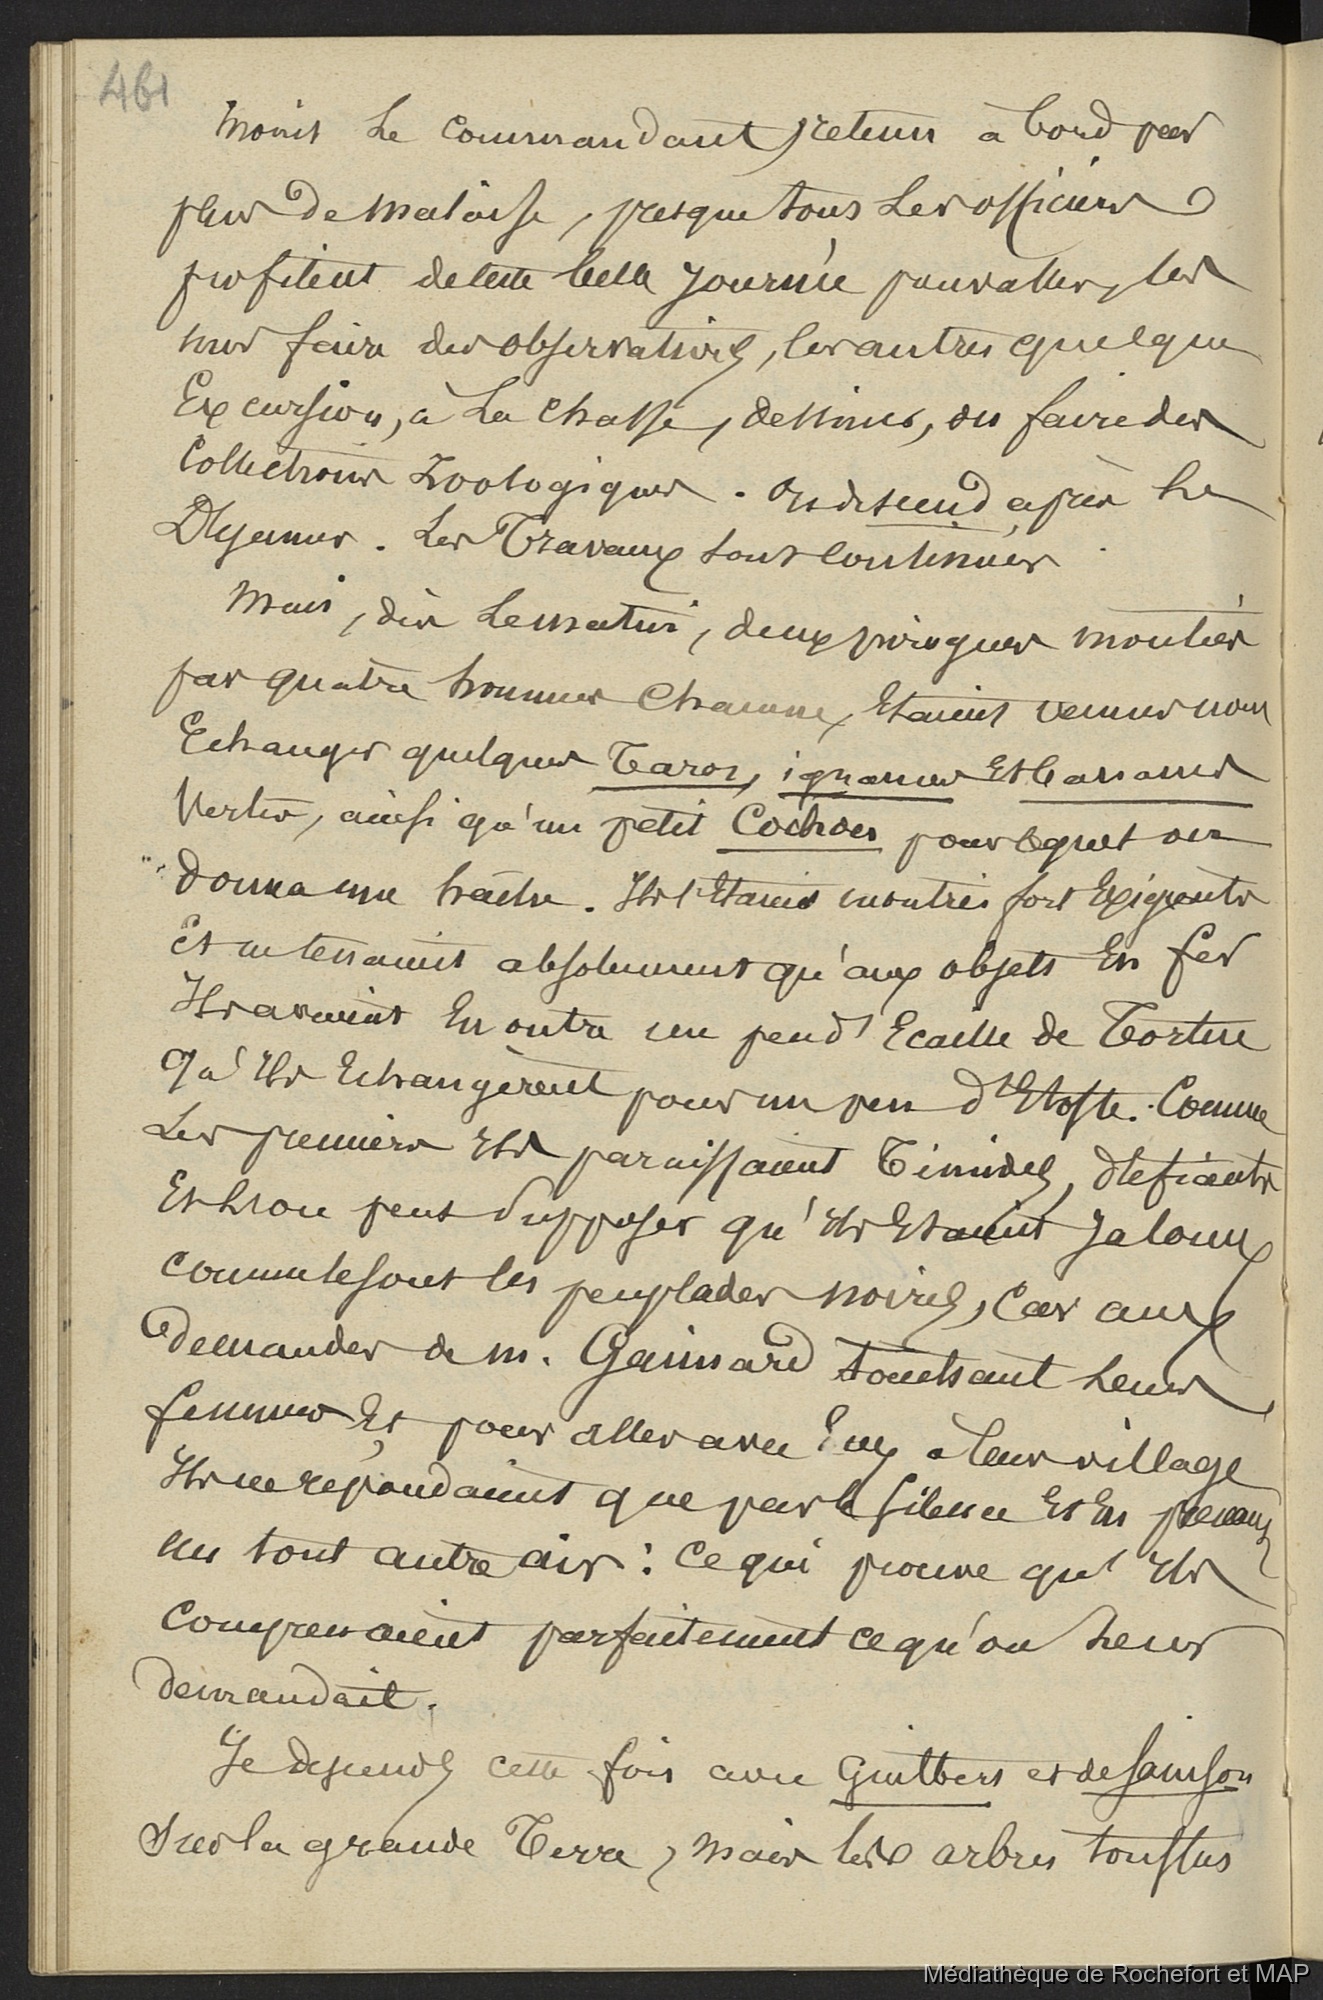 461
Moins le commandant, retenu à bord par
plus de malaise, presque tous les officiers
profitent de cette belle journée pour aller, les
uns faire des observations, les autres quelque
Excursion, à la chasse, dessiner, ou faire des
Collections Zoologiques. On descend après le
Déjeuner. Les Travaux sont continués
Mais, dès le matin, deux pirogues montées
par quatre hommes chacune, Etaient venues nous
Echanger quelques Taros, ignames Et bananes
Vertes, ainsi qu'un petit Cochon pour lequel on
donna une hache. Ils s'Etaient montrés fort Exigeants
Et ne tenaient absolument qu'aux objets En fer
Ils avaient En outre un peu d'Ecaille de Tortue
qu'Ils Echangèrent pour un peu d'Etoffe. Comme
Les premiers Ils paraissaient Timides, défiants
Et l'on peut Supposer qu'Ils Etaient Jaloux
comme le sont les peuplades noires, Car aux
demandes de m. Gaimard touchant leurs
femmes Et pour aller avec Eux à leur village
Ils ne répondaient que par le silence Et En prenant
un tout autre air : Ce qui prouve qu'Ils
comprenaient parfaitement ce qu'on leur
demandait.
Je descends cette fois avec Guilbert et de Sainson
Sur la grande Terre, mais les arbres touffus
Médiathèque de Rochefort et MAP